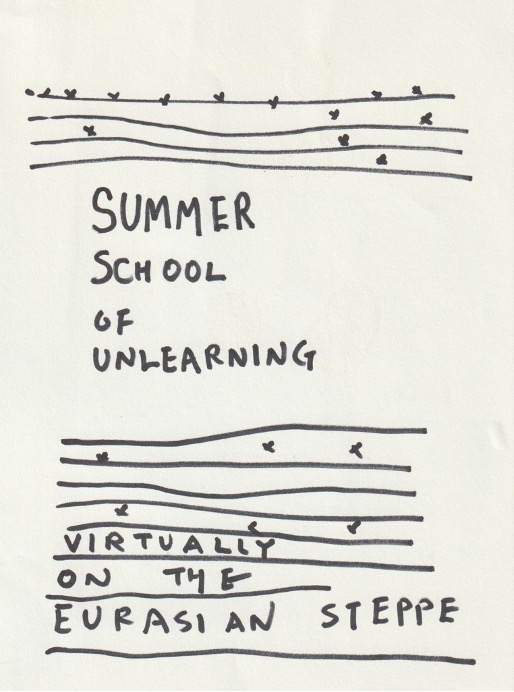 SUMMER
SCHOOL
OF
UNLEARNING
VIRTUALLY
ON THE
EURASIAN STEPPE